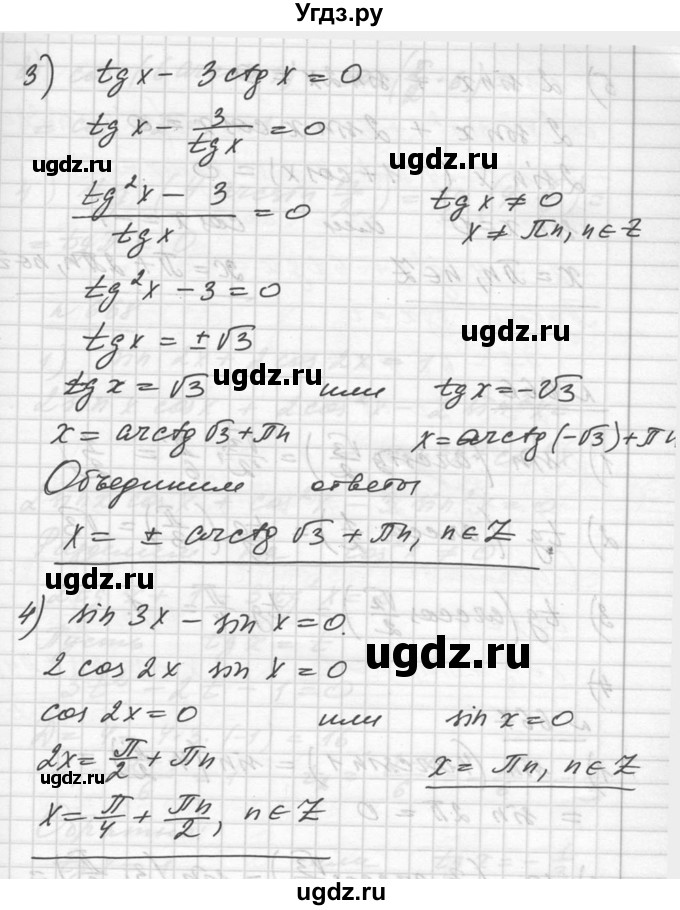 Угдз.ру
3) tg x - 3 ctg x = 0
tg x - 3/tg x = 0
ugdz.ru ugdz.ru
(tg²x - 3)/tg x = 0 tg x ≠ 0
x ≠ πn, n ∈ Z
tg²x - 3 = 0
tg x = ±√3 ugdz.ru
ugdz.ru
tg x = √3 или tg x = -√3
x = arctg √3 + πn x = arctg(-√3) + πn
Объединим ответы
x = ± arctg √3 + πn, n ∈ Z.
ugdz.ru ugdz.ru
4) sin 3x - sin x = 0.
ugdz.ru
2 cos 2x sin x = 0
cos 2x = 0 или sin x = 0
2x = π/2 + πn x = πn, n ∈ Z
ugdz.ru
x = π/4 + πn/2, n ∈ Z
ugdz.ru
ugdz.ru